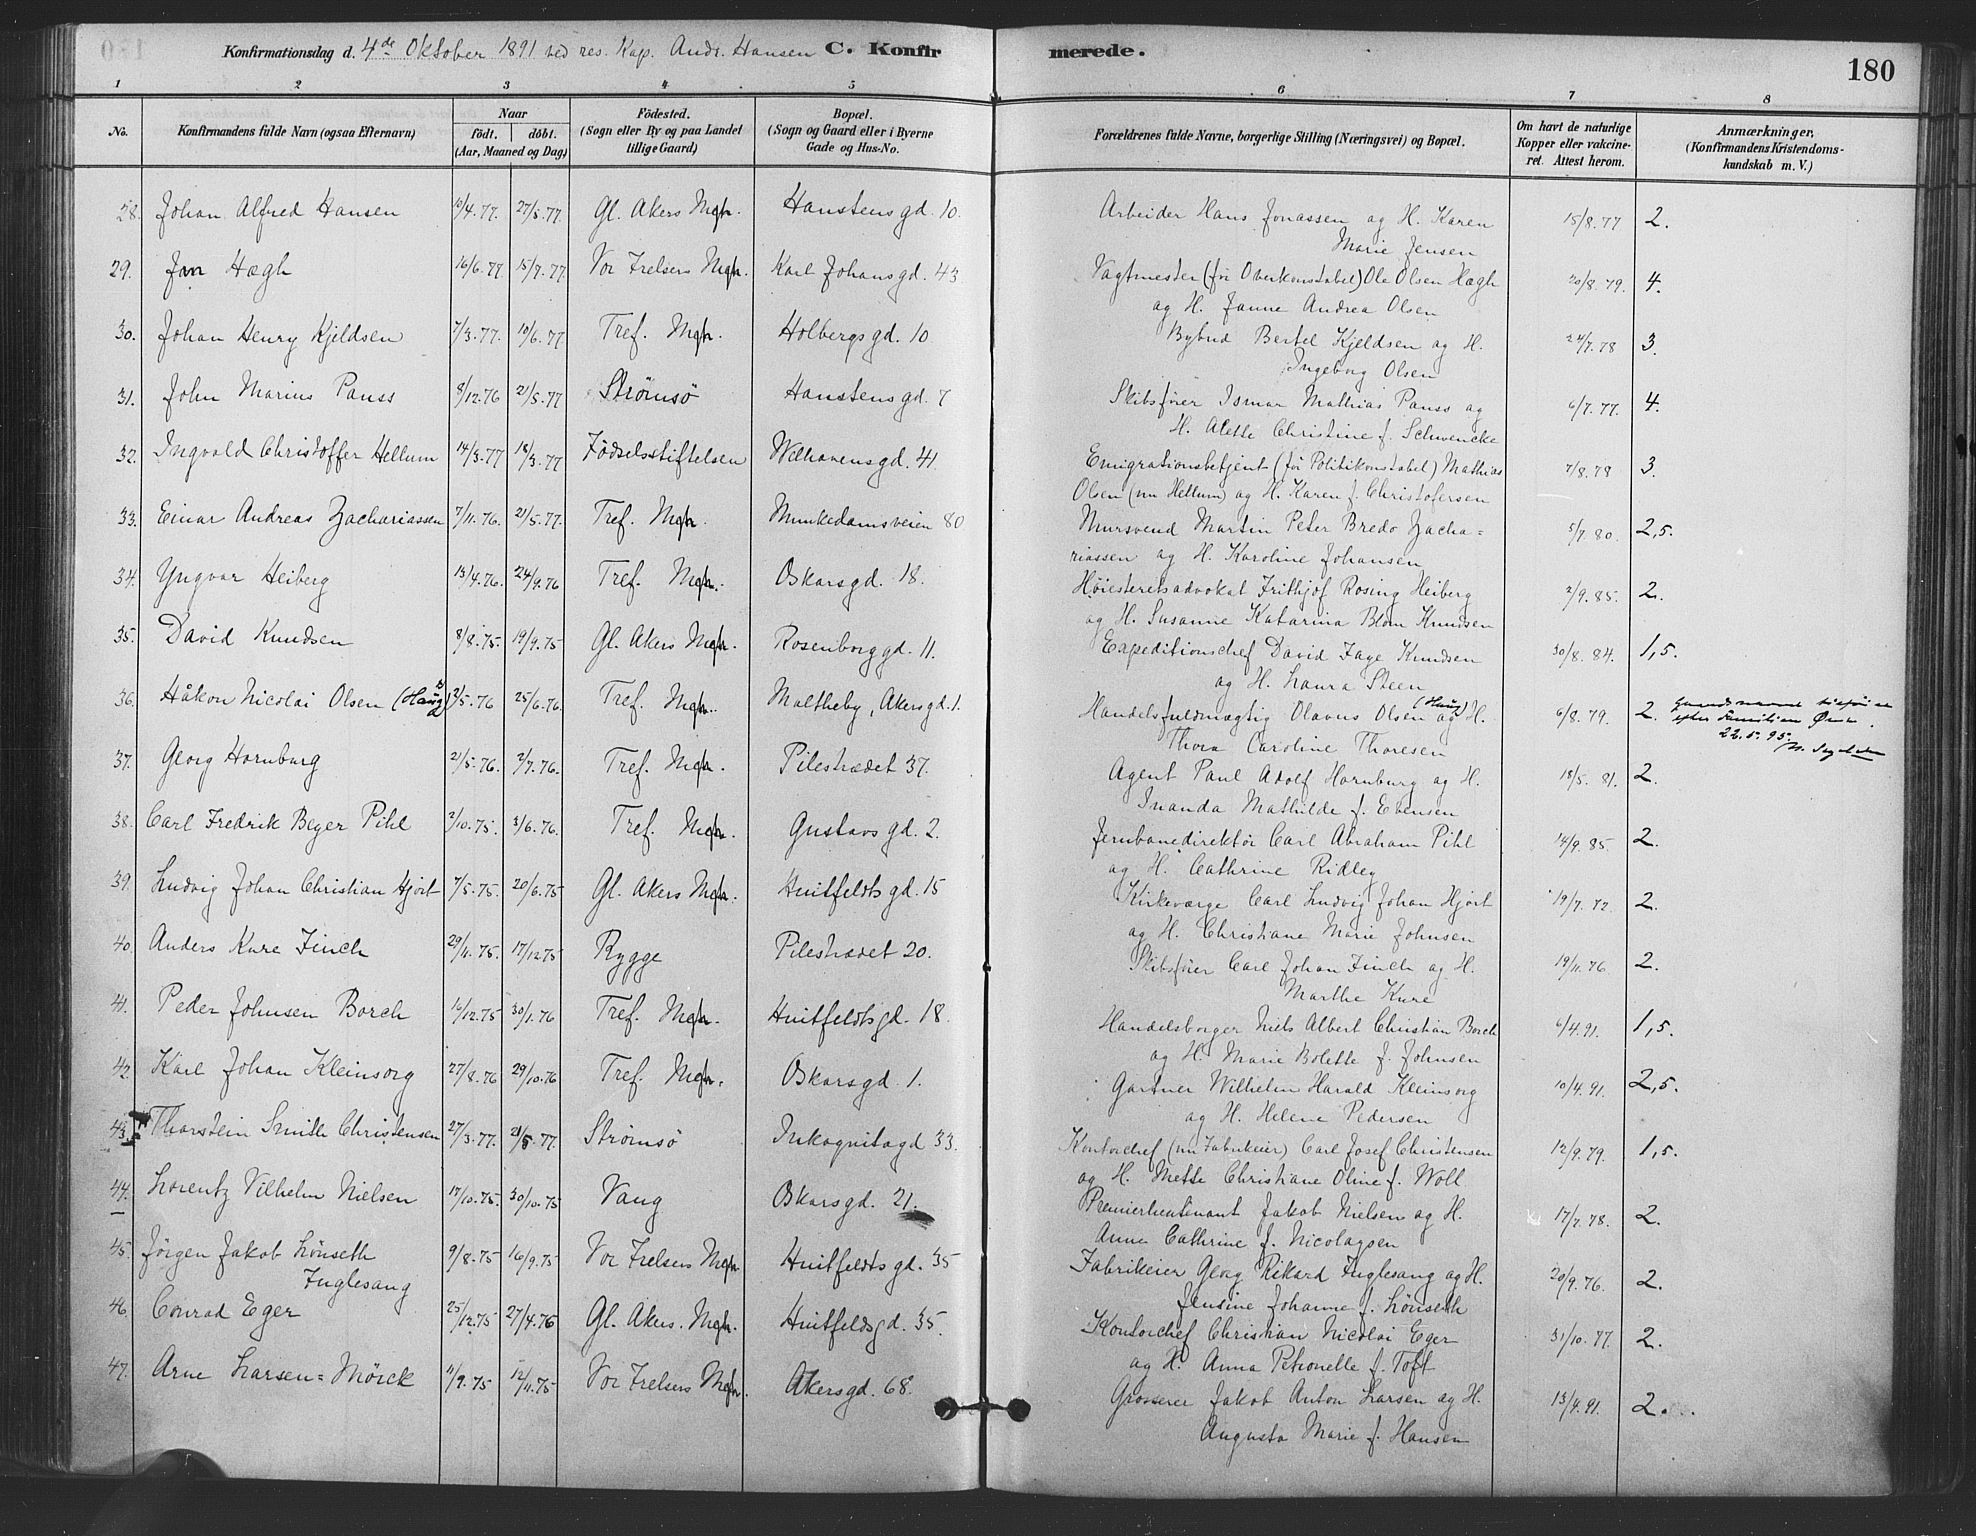 Konfirmationsdag d. 4de Oktober 1891 ved res. Kap. Andr. Hansen C. Konfirmerede. 180
1 2 3 4 5 6 7 8
No. Konfirmandens fulde Navn (ogsaa Efternavn) Naar födt. döbt. (Aar, Maaned og Dag) Födested. (Sogn eller By og paa Landet tillige Gaard) Bopæl. (Sogn og Gaard eller i Byerne Gade og Hus-No. Forældrenes fulde Navne, borgerlige Stilling (Næringsvei) og Bopæl. Om havt de naturlige Kopper eller vakcineret. Attest herom. Anmærkninger, (Konfirmandens Kristendomskundskab m. V.)
28. Johan Alfred Hansen 10/4.77. 27/5.77. Gl. Akers Mgh. Hanstensgd. 10. Arbeider Hans Jonassen og H. Karen 15/8.77 2.
Marie Jensen
29. Jan Hægh 16/6.77 15/7.77. Vor Frelsers Mgh. Karl Johansgd. 43 Vagtmester (før Overkonstabel) Ole Olsen Hægh 20/8.79. 4.
og H. Janne Andrea Olsen
30. Johan Henry Kjeldsen 7/3.77. 10/6.77 Tref. Mgh. Holbergsgd. 10 Bybud Bertel Kjeldsen og H. 24/7.78 3.
Ingeborg Olsen
31. John Marius Pauss 8/12.76 21/5.77 Strömsö Hanstensgd. 7 Skibsfører Ismar Mathias Pauss og 6/7.77. 4.
H. Alette Christine f. Schwencke
32. Ingvald Christoffer Hellum 14/3.77 18/3.77 Födselsstiftelsen Welhavensgd. 41. Emigrationsbetjent (før Politikonstabel) Mathias 7/8.78 3.
Olsen (nu Hellum) og H. Karen f. Christofersen
33. Einar Andreas Zachariassen 7/11.76. 21/5.77. Tref. Mgh. Munkedamsveien 80 Mursvend Martin Peter Bredo Zacha= 5/7.80. 2,5.
riassen og H. Karoline Johansen
34. Yngvar Heiberg 13/4.76. 24/9.76 Tref. Mgh. Oskarsgd. 18. Höiesteretsadvokat Frithjof Rosing Heiberg 2/9.85. 2.
og H. Susanne Katarina Blom Knudsen
35. David Knudsen 8/8.75. 19/9.75 Gl. Akers Mgh. Rosenborggd. 11. Expeditionschef David Faye Knudsen 30/8.84. 1,5.
og H. Laura Steen
36. Håkon Nicolai Olsen (Haug) 2/5.76 25/6.76. Tref. Mgh. Maltheby, Akersgd. 1. Handelsfuldmægtig Olavus Olsen (Haug) og H. 6/8.79. 2. Gaardsnavnet tilføiet
efter Familiens
22.5.95.
Thora Caroline Thoresen
37. Georg Hornburg 21/5.76. 2/7.76. Tref. Mgh. Pilestrædet 37. Agent Paul Adolf Hornburg og H. 18/5.81. 2.
Inanda Mathilde f. Evensen
38. Carl Fredrik Beyer Pihl 2/10.75. 3/6.76. Tref. Mgh. Gustavs gd. 2. Jernbanedirektör Carl Abraham Pihl 14/9.85. 2.
og H. Cathrine Ridley
39. Ludvig Johan Christian Hjort 7/5.75. 20/6.75 Gl. Akers Mgh. Huitfeldtsgd. 15 Kirkeværge Carl Ludvig Johan Hjort 19/7.72. 2.
og H. Christiane Marie Johnsen
40. Anders Kure Finch 29/11.75. 17/12.75 Rygge Pilestrædet 20. Skibsfører Carl Johan Finch og H. 19/11.76. 2.
Marthe Kure
41. Peder Johnsen Borch 16/12.75 30/1.76 Tref. Mgh. Huitfeldtsgd. 18. Handelsborger Niels Albert Christian Borch 6/4.91. 1,5.
og H. Marie Bolette f. Johnsen
42. Karl Johan Kleinsorg 27/8.76 29/10.76 Tref. Mgh. Oskarsgd. 1. Gartner Wilhelm Harald Kleinsorg 10/4.91. 2,5.
og H. Helene Pedersen
43. Thorstein Smith Christensen 27/3.77. 21/5.77. Strömsö Inkognitogd 33. Kontorchef (nu Fabrikeier) Carl Josef Christensen 12/9.79. 1,5.
og H. Mette Christiane Oline f. Woll
44. Lorentz Vilhelm Nielsen 17/10.75. 30/10.75 Vang Oskarsgd. 21. Premierlieutenant Jakob Nielsen og H. 17/7.78. 2.
Anne Cathrine f. Nicolaysen
45. Jörgen Jakob Lönseth 9/8.75 16/9.75 Vor Frelsers Mgh. Huitfeldtsgd. 35 Fabrikeier Georg Rikard Fuglesang og H. 20/9.76. 2.
Fuglesang Jensine Johanne f. Lönseth
46. Conrad Eger 25/12.75 27/4.76 Gl. Akers. Mgh. Huitfeldsgd. 35. Kontorchef Christian Nicolai Eger 31/10.77. 2.
og H. Anna Petronelle f. Toft
47. Arne Larsen=Mörck 11/9.75 12/11.75 Vor Frelsers Mgh. Akersgd. 68. Grosserer Jakob Anton Larsen og H. 13/4.91. 2.
Augusta Marie f. Hansen